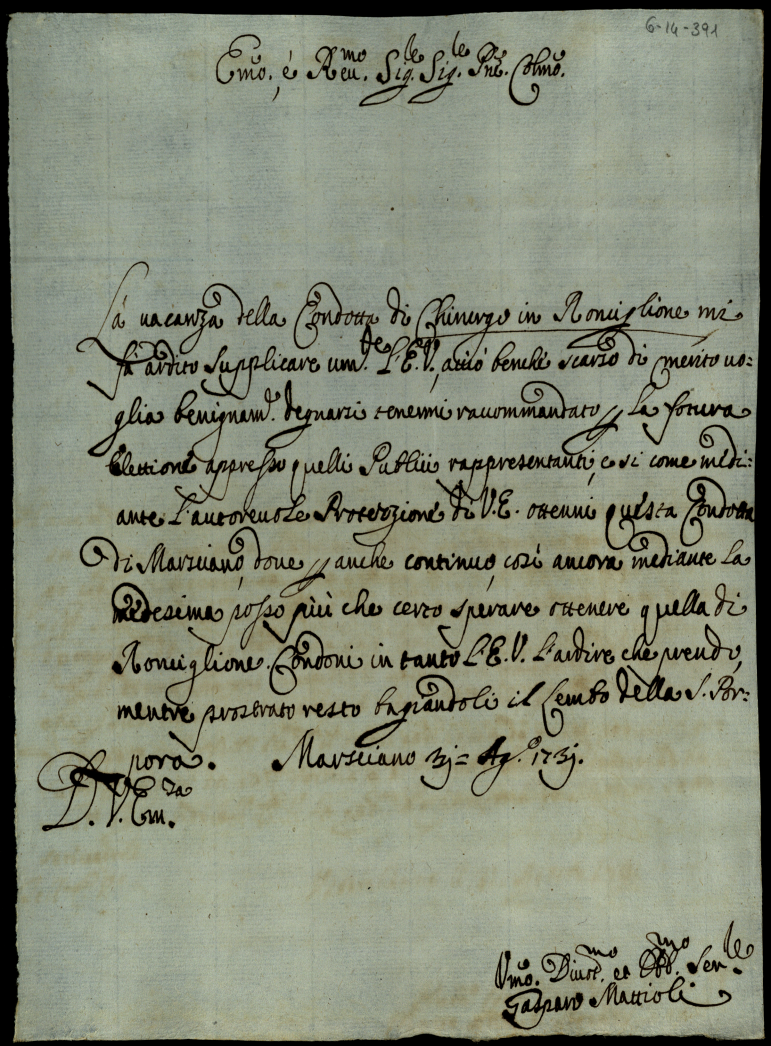 6-14-391
Emo. é Reu.mo Sig.le Sig.le Pne. Colmo.
La vacanza della Condotta di Chirurgo in Ronciglione mi
fà ardito supplicare um.de L'E.V., acciò benche scarso di merito uo:
glia benignam.e degnarsi tenermi raccommandato p la fotura
Elettione appresso quelli Publici rappresentanti, e si come medi:
ante l'autoreuole Protezzione di V.E. ottenni questa Condotta
di Marsciano, doue p anche continuo, così ancora mediante la
medesima posso più che certo sperare ottenere quella di
Ronciglione. Condoni in tanto L'E.V. L'ardire che prendo,
mentre prostrato resto bagiandoli il Lembo della S. Por:
pora. Marsciano 3j = Ag.o 173j.
D. V. Em.za
Vmo. Diuot.mo et Obb.mo Ser.le
Gasparo Mattioli